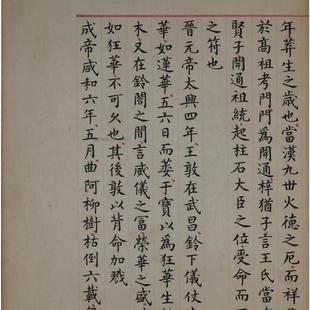 年莽生之歲也當漢九世火德之厄而祥
於高祖考門門為開通梓猶子言王氏當
賢子開通祖統起柱石大臣之位受命而
之符也
晉元帝太興四年王敦在武昌鈴下儀仗
華如蓮華五六日而萎于寶以為狂華生
木又在鈴閣之間言威儀之富榮華之盛
如狂華不可久也其後敦以背命加戮
成帝咸和六年五月曲阿柳樹枯倒六載